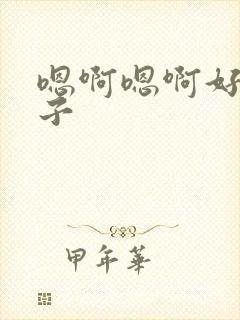 嗯啊嗯啊好
子
甲年華